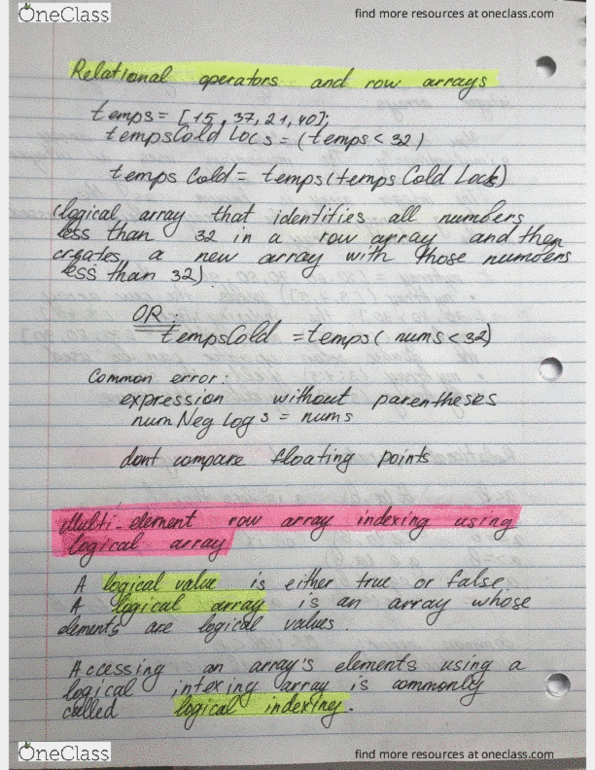 OneClass
find more resources at oneclass.com
Relational operators and row arrays
temps = [15, 37, 21, 40];
tempsCold Locs = (temps < 32)
temps Cold = temps(temps Cold Locs)
(logical array that identifies all numbers
less than 32 in a row array and then
creates a new array with those numbers
less than 32)
OR:
tempsCold = temps( nums < 32)
Common error:
expression without parentheses
num Neg Log s = nums
dont compare floating points
Multi-element row array indexing using
logical array
A logical value is either true or false
A logical array is an array whose
elements are logical values.
Accessing an array's elements using a
logical intexing array is commonly
called logical indexing.
OneClass
find more resources at oneclass.com